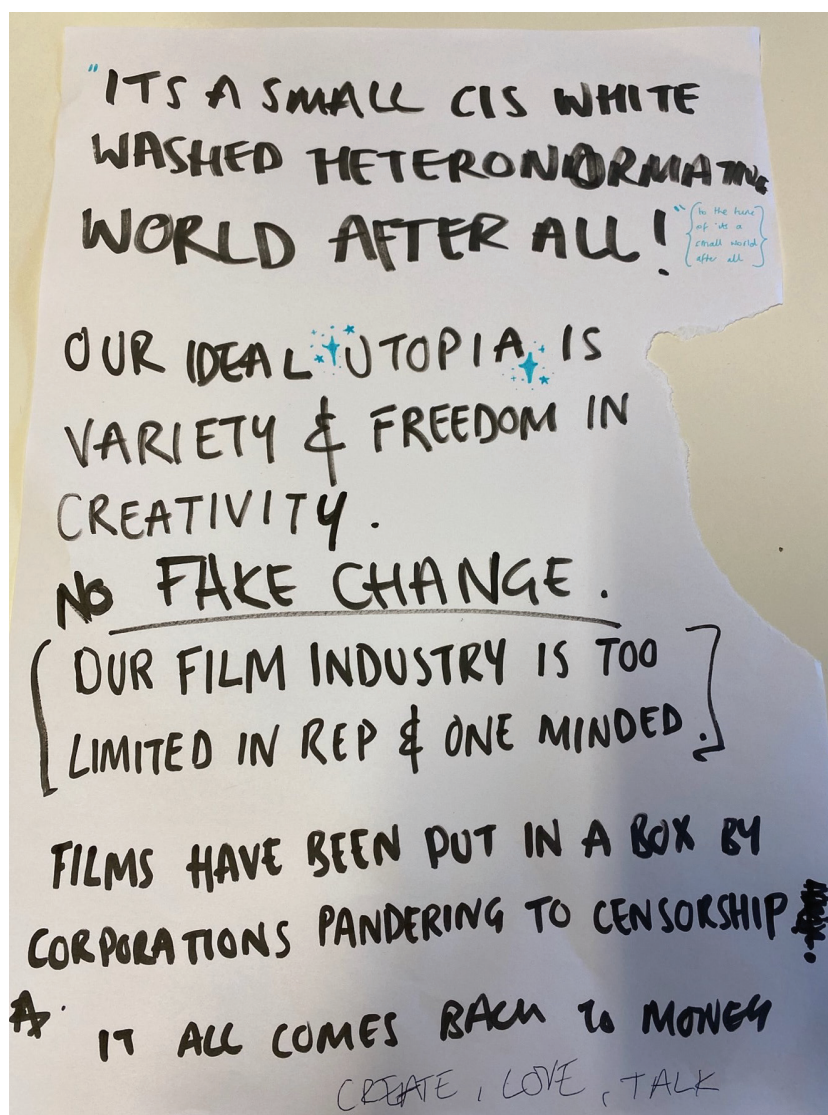 "ITS A SMALL CIS WHITE
WASHED HETERONORMATIVE
WORLD AFTER ALL!"
{to the tune
of 'its a
small world
after all}
OUR IDEAL UTOPIA IS
VARIETY & FREEDOM IN
CREATIVITY.
NO FAKE CHANGE.
[OUR FILM INDUSTRY IS TOO
LIMITED IN REP & ONE MINDED.]
FILMS HAVE BEEN PUT IN A BOX BY
CORPORATIONS PANDERING TO CENSORSHIP
IT ALL COMES BACK TO MONEY
CREATE, LOVE, TALK